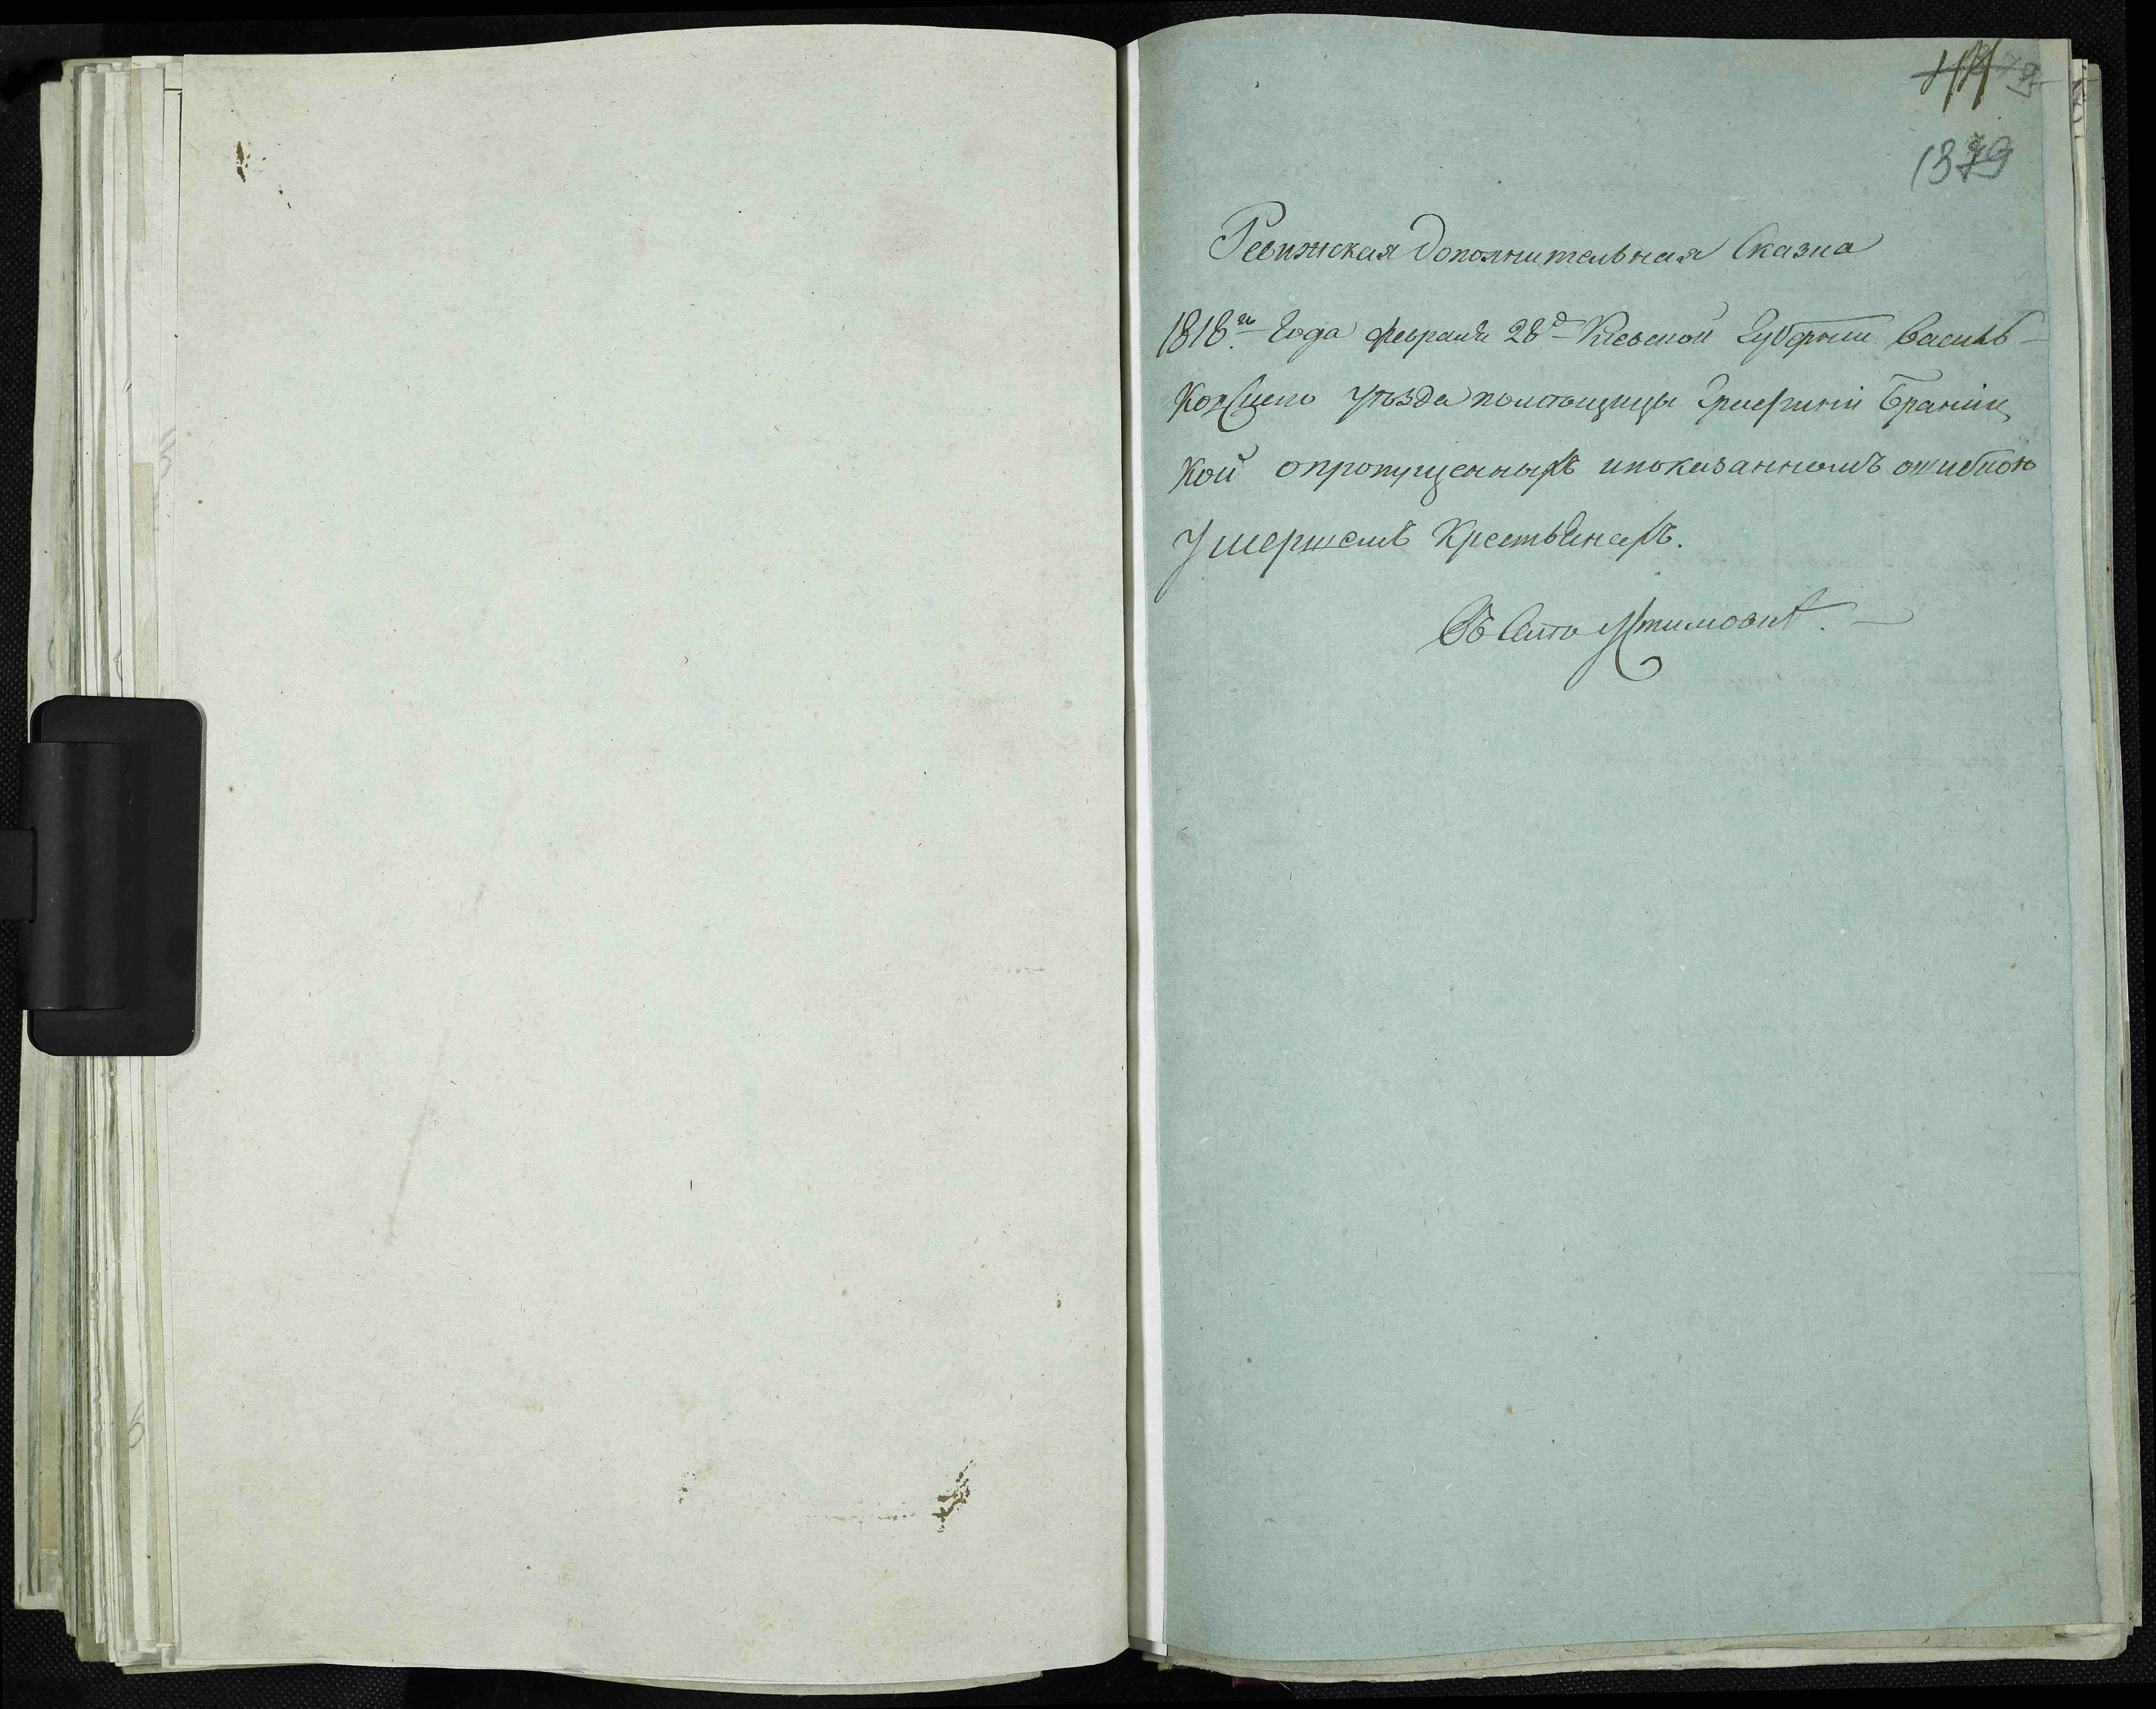 1379
Ревижская дополнительная Сказка
1818го Года февраля 28д Киевской Губернии Василь-
ковского уѣзда помѣщицы Графинѣ Браниц
кой опропущенныхъ ипоказанномъ ошибкою
умершемъ крестьянахъ.
Въ Селѣ Устимовкѣ.